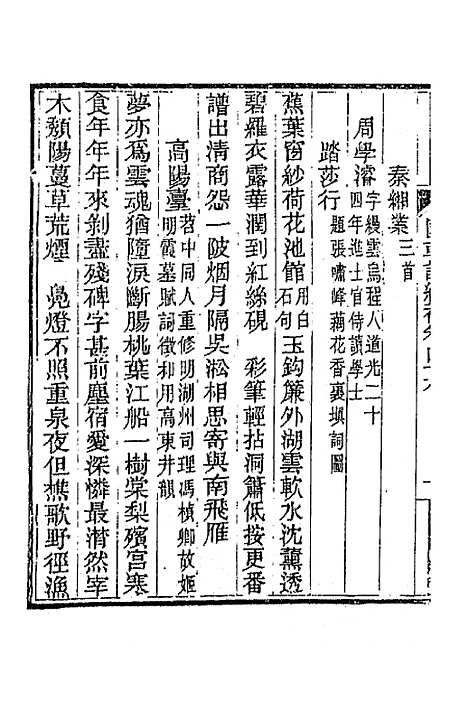 秦緗業三首
周學濬字縵雲烏程人道光二十四年進士官侍讀學士
踏莎行題張嘯峰藕花香裏填詞圖
蕉葉窗紗荷花池館用白石句玉鉤簾外湖雲軟水沈薰透
碧羅衣露華潤到紅絲硯　彩筆輕拈洞簫低按更番
譜出清商怨一陂烟月隔吳淞相思寄與南飛雁
高陽臺苕中同人重修明湖州司理馮楨卿故姬明霞墓賦詞徵和用高東井韻
夢亦爲雲魂猶墮淚斷腸桃葉江船一樹棠梨殯宮寒
食年年年來剝盡殘碑字甚前塵宿愛深憐最潸然宰
木頹陽蔓草荒煙　鳧燈不照重泉夜但樵歌野徑漁